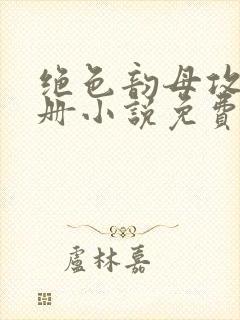 绝色韵母攻
册小说免費
盧林嘉